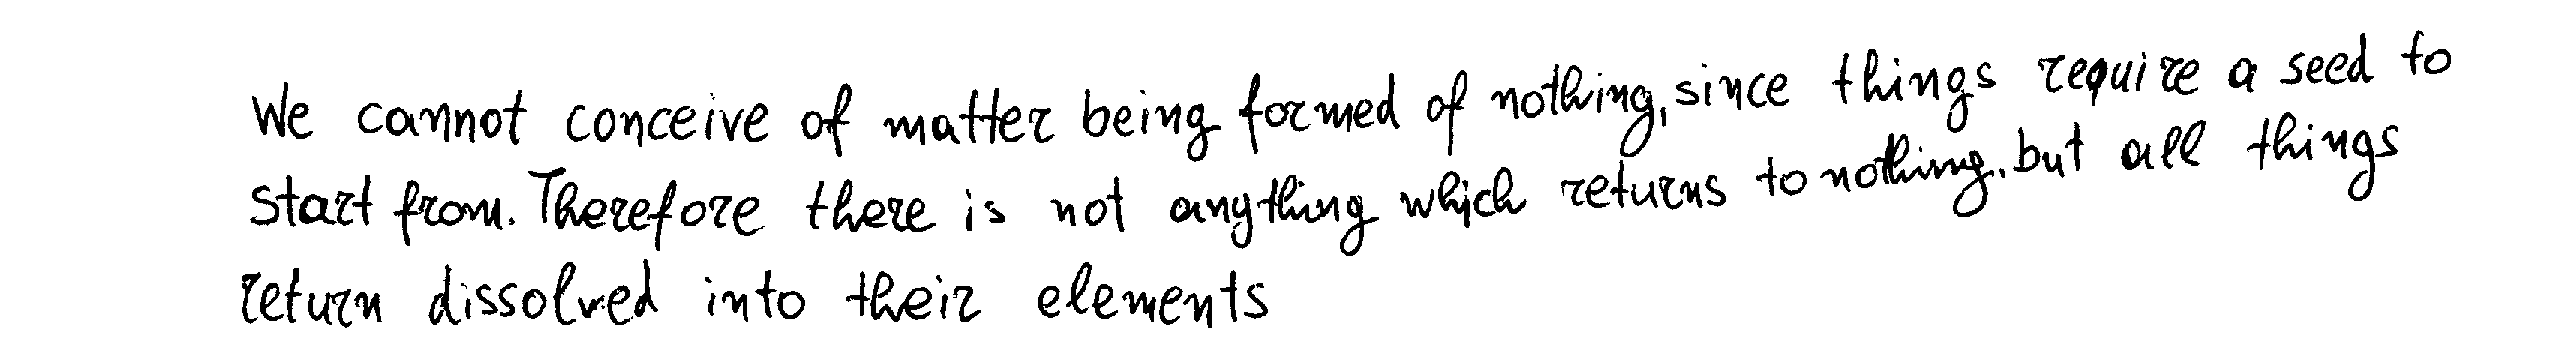 We cannot conceive of matter being formed of nothing, since things require a seed to
start from. Therefore there is not anything which returns to nothing, but all things
return dissolved into their elements